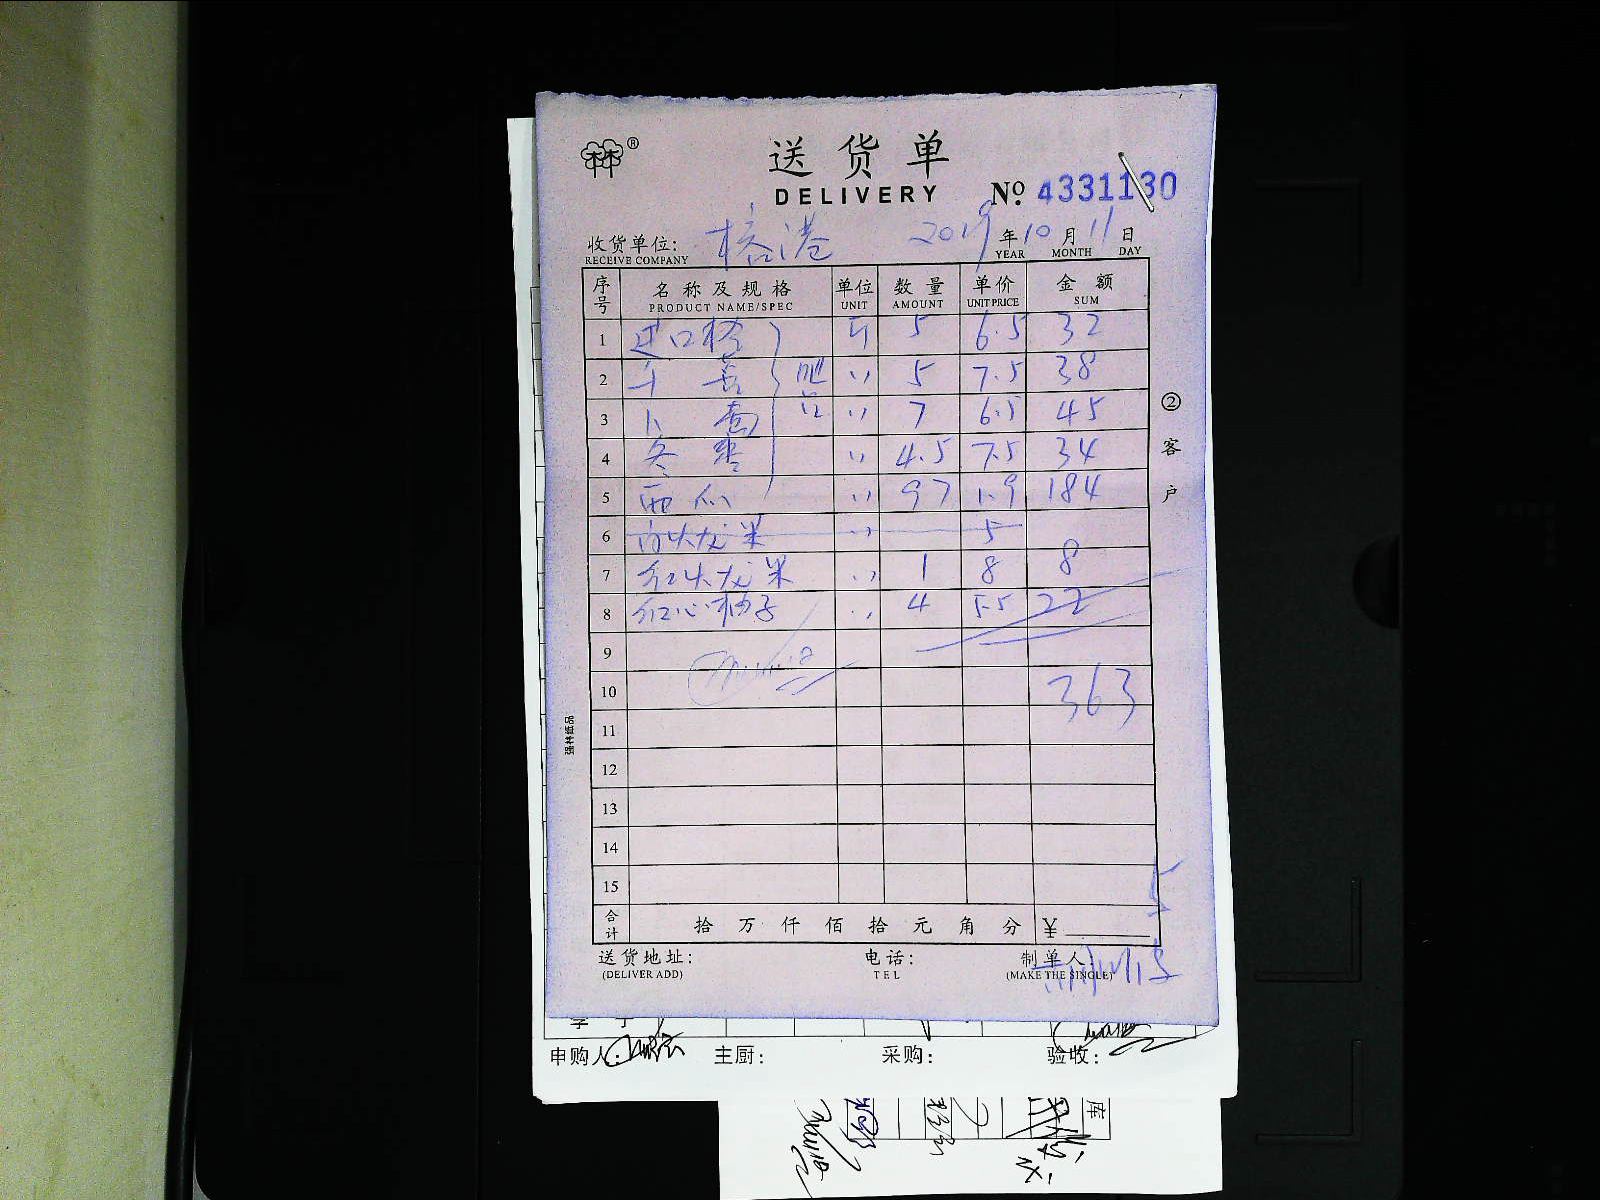 林® 送货单
DELIVERY
№ 4331130
收货单位: 榕港 2019年10月11日
RECEIVE COMPANY YEAR MONTH DAY
序号 名称及规格 单位 数量 单价 金额
PRODUCT NAME/SPEC UNIT AMOUNT UNIT PRICE SUM
1 进口橙 斤 5 6.5 32
2 吧 〃 5 7.5 38
3 台 〃 7 6.5 45
4 冬枣 〃 4.5 7.5 34
5 西瓜 〃 97 1.9 184
6 白火龙果 〃 5
7 红火龙果 〃 1 8 8
8 红心柚子 〃 4 5.5 22
9
10 363
11
12
13
14
15
合计 拾 万 仟 佰 拾 元 角 分 ¥
②客户
强林纸品
送货地址: 电话: 制单人:
(DELIVER ADD) TEL (MAKE THE SINGLE)
申购人: 主厨: 采购: 验收:
库